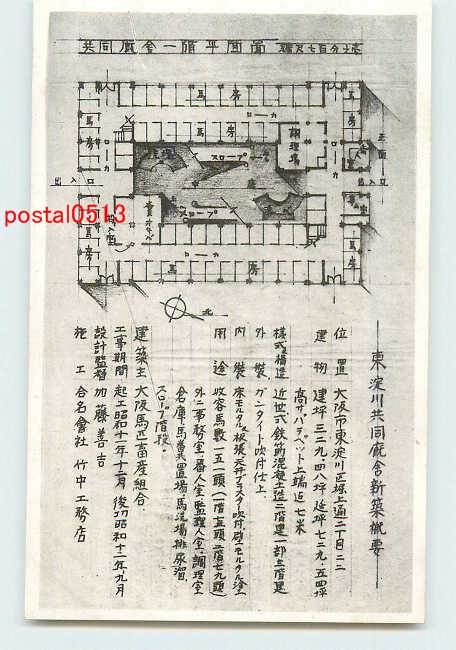 共同厩舎一階平面圖
馬房
馬房
調理場
馬房
馬房
スロープ
スロープ
出入口
出入口
正面
馬房
馬房
馬房
北
postal0513
東淀川共同厩舎新築概要
位置 大阪市東淀川区堀上通二丁目二二
建物 建坪三二九.四八坪 延坪七二九.五四坪
高サ.パラペット上端迄七米
様式.構造 近世式鉄筋混凝土造二階建一部三階建
外装 ガンタイト吹付仕上
内装 床モルタル及板張.天井プラスター吹付.壁モルタル塗
用途 收容馬数一五一頭(一階七二頭二階七九頭)
外ニ事務室.番人室.監理人室.調理室
倉庫.馬糞置場.馬洗場.排尿溜
スロープ.階段.
建築主 大阪馬匹畜産組合.
工事期間 起工昭和十一年十二月 竣功昭和十二年九月
設計監督 加藤善吉
施工 合名會社竹中工務店